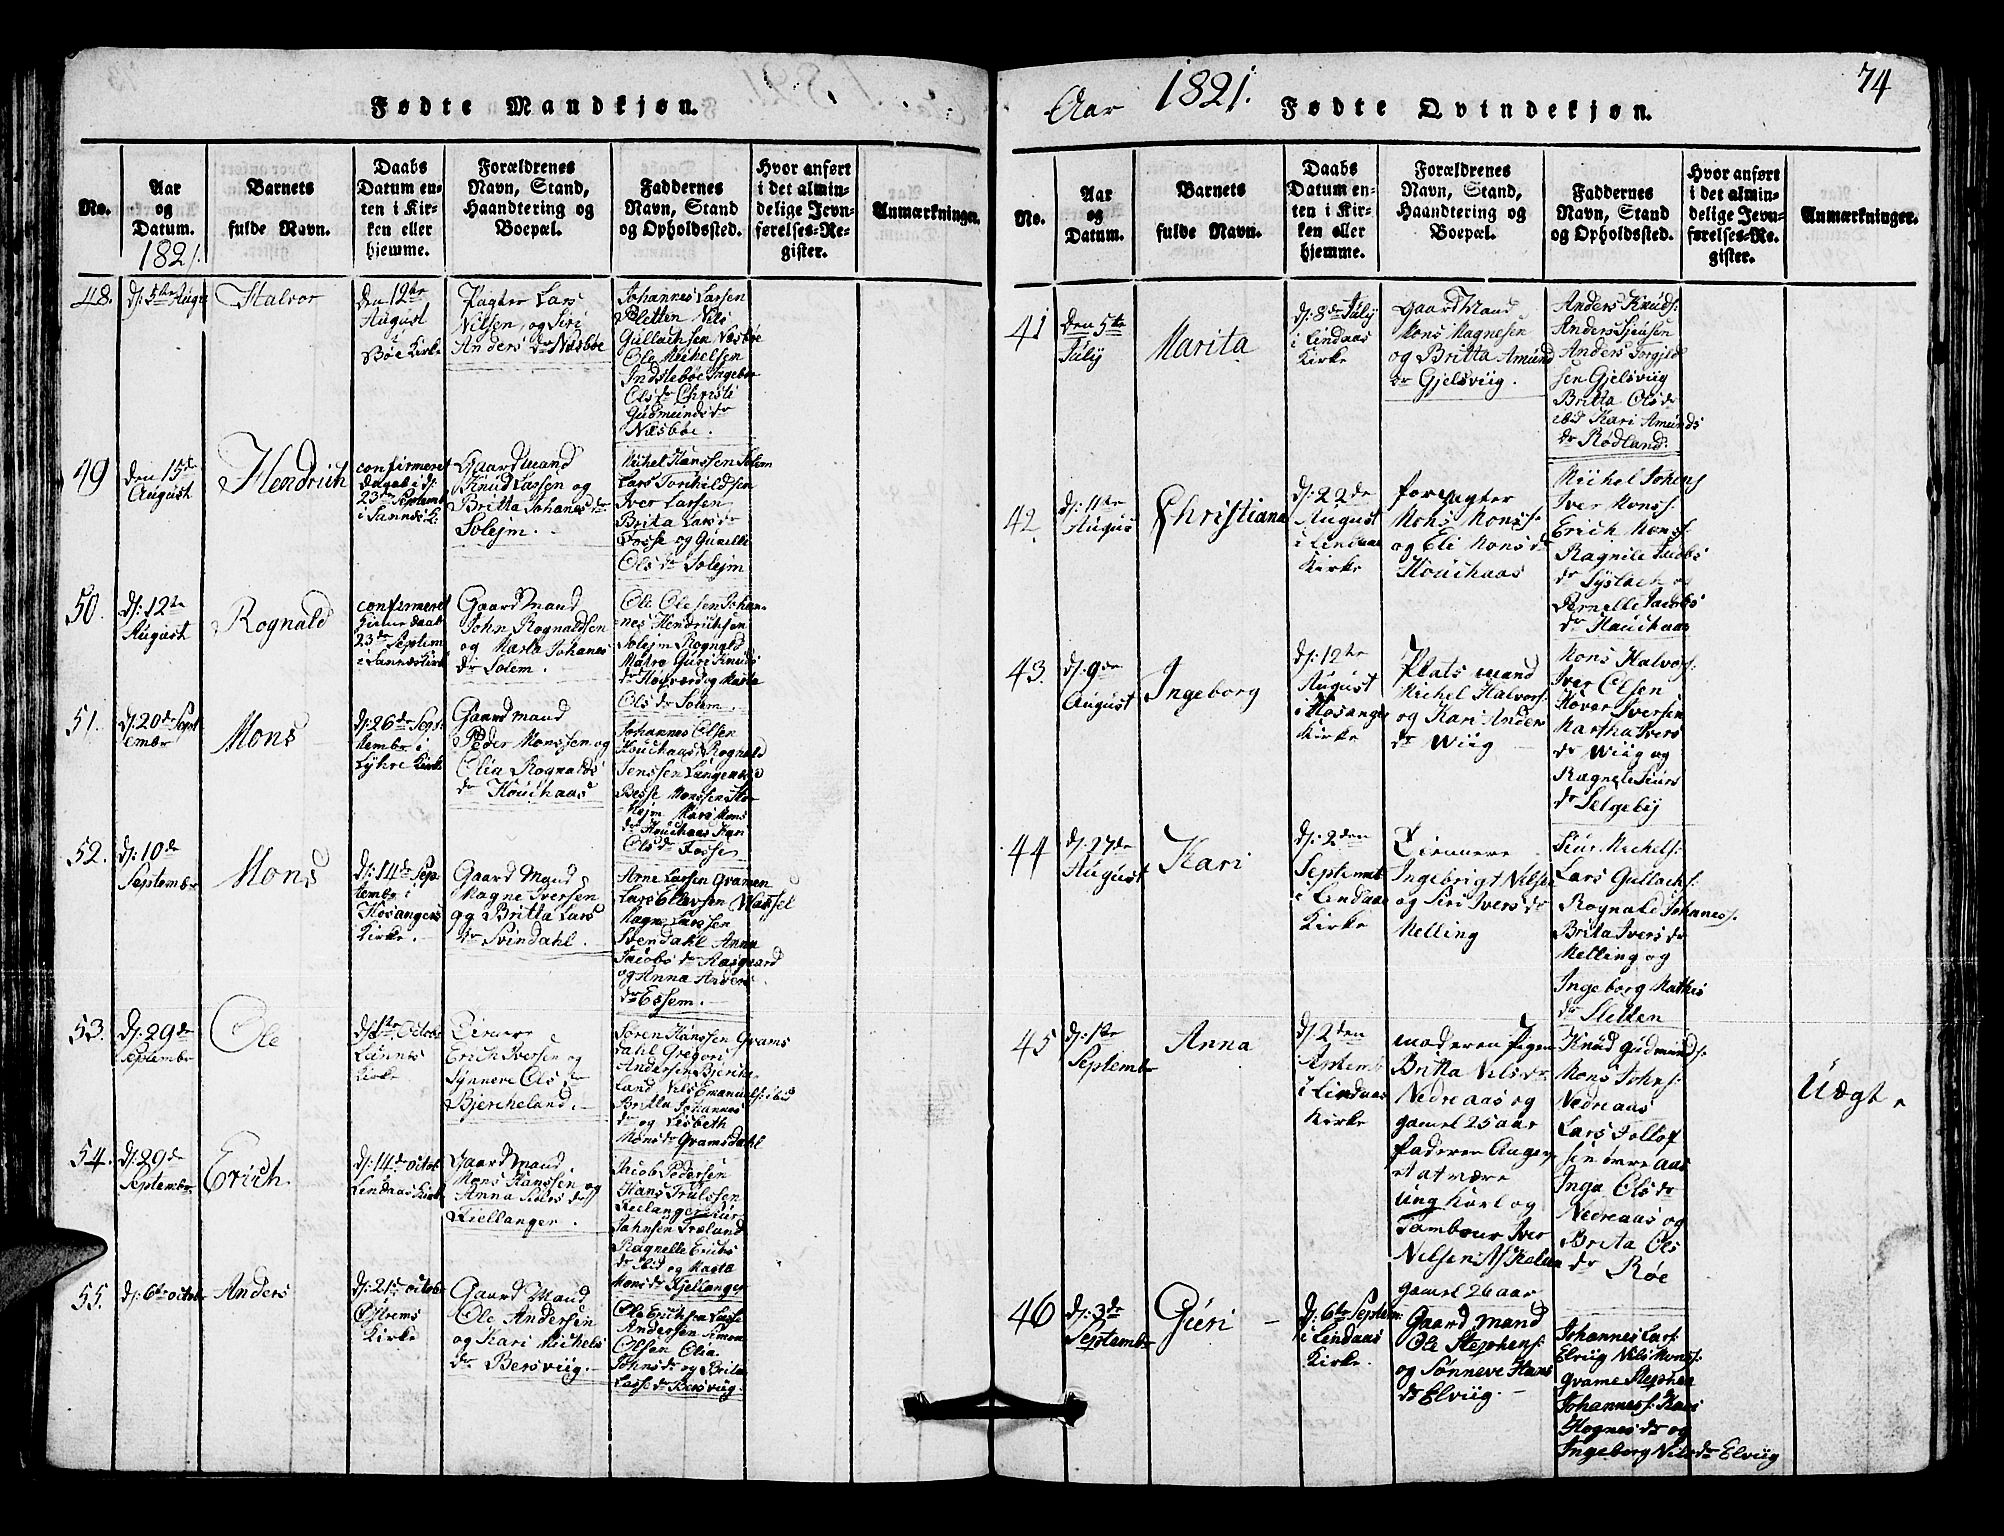 Fødte Mandkjøn.
No.
Aar
og
Datum.
1821.
Barnets
fulde Navn.
Daabs
Datum en-
ten i Kir-
ken eller
hjemme.
Forældrenes
Navn, Stand,
Haandtering og
Boepæl.
Faddernes
Navn, Stand
og Opholdssted.
Hvor anført
i det almin-
delige Jevn-
førelses-Re-
gister.
Anmærkninger.
48.
ds: 5te Augu
Halvor
den 12te
August
i
Bøe Kirke
Pagter Lars
Nilsen, og Siri
Anders dr Næsbøe
Johannes Larsen
Sletten Nils
Gullachsen Næsbøe
Ole Michelsen
Indstebøe Ingebor
Ols dr Christi
Gudmunds dr
Næsbøe.
49
den 15de
August
Hendrich
confirmeret
daab i ds:
23de Septemb
i Sannds K:
Gaardmand
Knud Larsen og
Britta Johanes dr
Solejm.
Michel Hanssen Solem
Lars Torchildsen
Iver Larsen
Brita Lars dr
Fosse og Gunelle
Ols dr Solejm
50.
ds: 12te
August
Rognald
confirmeret
hieme daab
23de Septem
i Sannes Kirke
Gaard Mand
John Rognaldsen
og Marta Johanes
dr Solem.
Ole Olesen Johan-
nes Hendrichsen
Solejm Rognald
Matre Guri Knuds
dr Høyværd og Marta
Ols dr Solem.
51.
ds: 20de Sept
embr
Mons
ds: 26de Sept
tembr i
Lykre Kirke
Gaardmand
Peder Monssen og
Olia Rognalds
dr Houchaas
Johannes Olsen
Houchaas Rognald
Jenssen Langenæsd
Besse Monssen Sto-
Hejm Mari Mons
dr Houchaas Kari
Ols dr Fosse
52.
ds: 10de
Septembr
Mons
ds: 14de Sep
tembr i
Hosanger
Kirke.
Gaard Mand
Magne Iversen
og Britta Lars
dr Svindahl.
Arne Larsen Gramen
Lars Ellevsen Wassel
Magne Larssen
Svendahl Anna
Jacobs dr Aasgaard
og Anna Anders
dr Essem.
53.
ds: 29de
Septembr
Ole
ds: 1te Octobr
Lunnes
Kirke
Tienere
Erich Iversen og
Synneve Ols dr
Bjercheland.
Søren Hanssen Grams
dahl Gregori
Andersen Bjerche
land Nils Emanuels: ibid
Britta Johannes
dr og Lisbeth
Mons dr Gramsdahl
54.
ds: 29de
Septembr
Erich
ds: 14de octob
Lindaas Kirke
Gaard Mand
Mons Hanssen og
Anna Siurs dr
Kiellanger.
Jacob Pedersen
Hans Trulssen
Kielanger Siur
Johnsen Træland
Ragnelle Erichs
dr ibid og Marta
Mons dr Kjellanger
55.
ds: 6te octobr
Anders
ds: 21de octobr
Østrems
Kirke
Gaard Mand
Ole Andersen
og Kari Michels
dr Bersviig.
Ole Erichsen Lasse
Andersen Simon
Olsen Olia
Johns dr og Brita
Lasse dr Bersviig.
Aar 1821.
74
Fødte Qvindekjøn.
No.
Aar
og
Datum.
Barnets
fulde Navn.
Daabs
Datum en-
ten i Kir-
ken eller
hjemme.
Forældrenes
Navn, Stand,
Haandtering og
Boepæl.
Faddernes
Navn, Stand
og Opholdssted.
Hvor anført
i det almin-
delige Jevn-
førelses-Re-
gister.
Anmærkninger.
41
Den 5te
July
Marita
ds: 8de July
i Lindaas
Kirke
Gaard Mand
Mons Magnesen
og Britta Amund
dr Gjelsviig.
Anders Knuds:
Anders Sjursen
Anders Torgild
sen Gjelsviig
Britta Ols dr
ibid Kari Amunds
dr Rødland.
42.
ds: 11te
August
Christiana
ds: 22de
August
i Lindaas
Kirke
forpagter
Mons Monss:
og Eli Mons dr
Houchaas
Michel Johens
Iver Monss:
Erich Mons:
Ragnile Jacobs
dr Syslach og
Pernelle Jacobs
dr Houchaas
43.
ds: 9de
August
Ingeborg
ds: 12te
August
i Hosanger
Kirke
Plats mand
Michel Halvors:
og Kari Anders
dr Wiig
Mons Halvors:
Iver Olsen
Hover Iversen
Martha Ivers
dr Wiig og
Ragnele Siurs
dr Selgeby
44
ds: 27de
August
Kari
ds: 2den
Septemb
i Lindaas
Kirke
Tiennere
Ingebrigt Nilsen
og Siri Ivers dr
Melling
Siur Michels:
Lars Gullachs:
Rognald Johaness:
Brita Ivers dr
Melling og
Ingeborg Mathis
dr Sletten
45
ds: 1te
Septembr
Anna
ds: 2den
Septemb
i Lindaas
Kirke
moderen Pigen
Britta Nils dr
Nedreaas og
gamel 25 aar
faderen Anger
et at være
Ung Karl og
Tambour Iver
Nilsen Askeland
gamel 26 aar
Knud Gudmunds:
Mons Johns:
Nedreaas
Lars Tollof
sen øvre aas
Inga Ols dr
Nedreaas og
Brita Ols
dr Røe
Uægt.
46
ds: 3de
Septembr
Guri
ds: 6te Septem:
i Lindaas
Kirke.
Gaard Mand
Ole Stephens:
og Sønneve Hans
dr Elviig.
Johannes Lars:
Elviig Nils Monss:
Gvame Stephen
Johanness: Kari
Hognes dr og
Ingeborg Nils dr Elviig